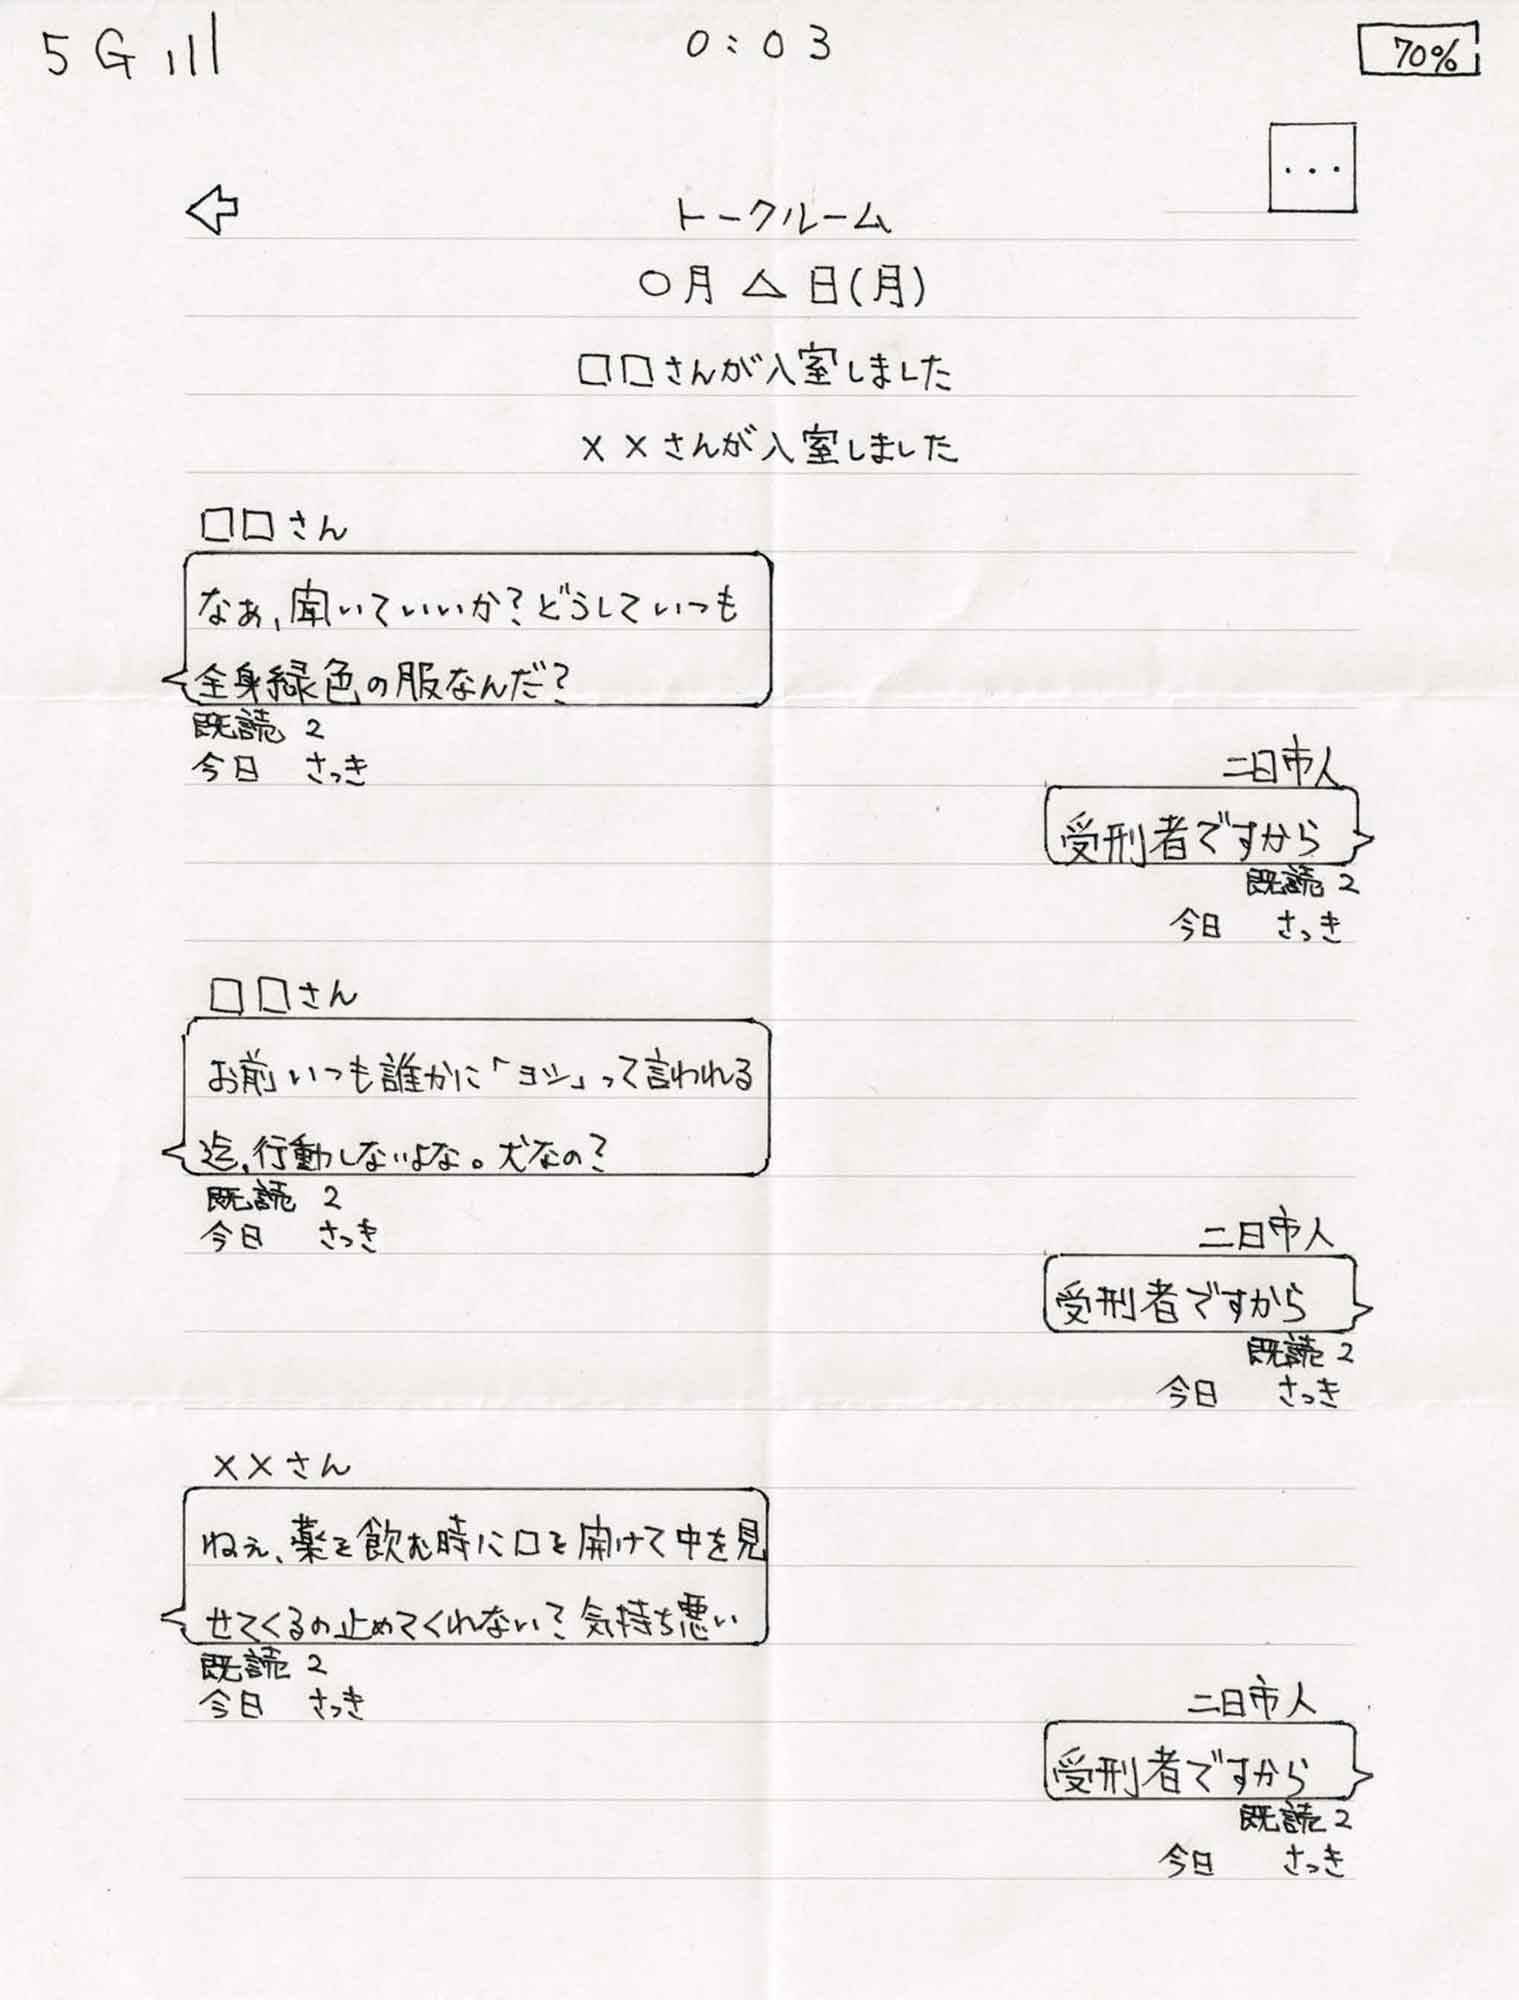 5G
0:03
70%
...
トークルーム
○月△日(月)
□□さんが入室しました
××さんが入室しました
□□さん
なぁ、聞いていいか?どうしていつも
全身緑色の服なんだ?
既読 2
今日 さっき
二日市人
受刑者ですから
既読 2
今日 さっき
□□さん
お前いつも誰かに「ヨシ」って言われる
迄、行動しないよな。犬なの?
既読 2
今日 さっき
二日市人
受刑者ですから
既読 2
今日 さっき
××さん
ねぇ、薬を飲む時に口を開けて中を見
せてくるの止めてくれない?気持ち悪い
既読 2
今日 さっき
二日市人
受刑者ですから
既読 2
今日 さっき